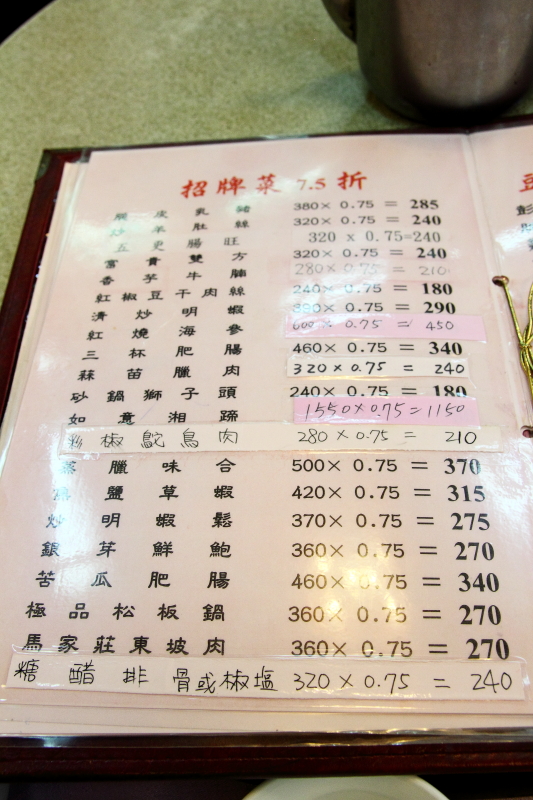 招牌菜 7.5 折
脆皮乳豬 380× 0.75 = 285
炒羊肚絲 320× 0.75 = 240
五更腸旺 320 x 0.75=240
富貴雙方 320× 0.75 = 240
香芋牛腩 280× 0.75 = 210
紅椒豆干肉絲 240× 0.75 = 180
清炒明蝦 390× 0.75 = 290
紅燒海參 600× 0.75 = 450
三杯肥腸 460× 0.75 = 340
蒜苗臘肉 320×0.75 = 240
砂鍋獅子頭 240× 0.75 = 180
如意湘蹄 1550×0.75=1150
椒鴕鳥肉 280×0.75 = 210
蒸臘味合 500× 0.75 = 370
鹽草蝦 420× 0.75 = 315
炒明蝦鬆 370× 0.75 = 275
銀芽鮮鮑 360× 0.75 = 270
苦瓜肥腸 460× 0.75 = 340
極品松板鍋 360× 0.75 = 270
馬家莊東坡肉 360× 0.75 = 270
糖醋排骨或椒塩 320×0.75 = 240